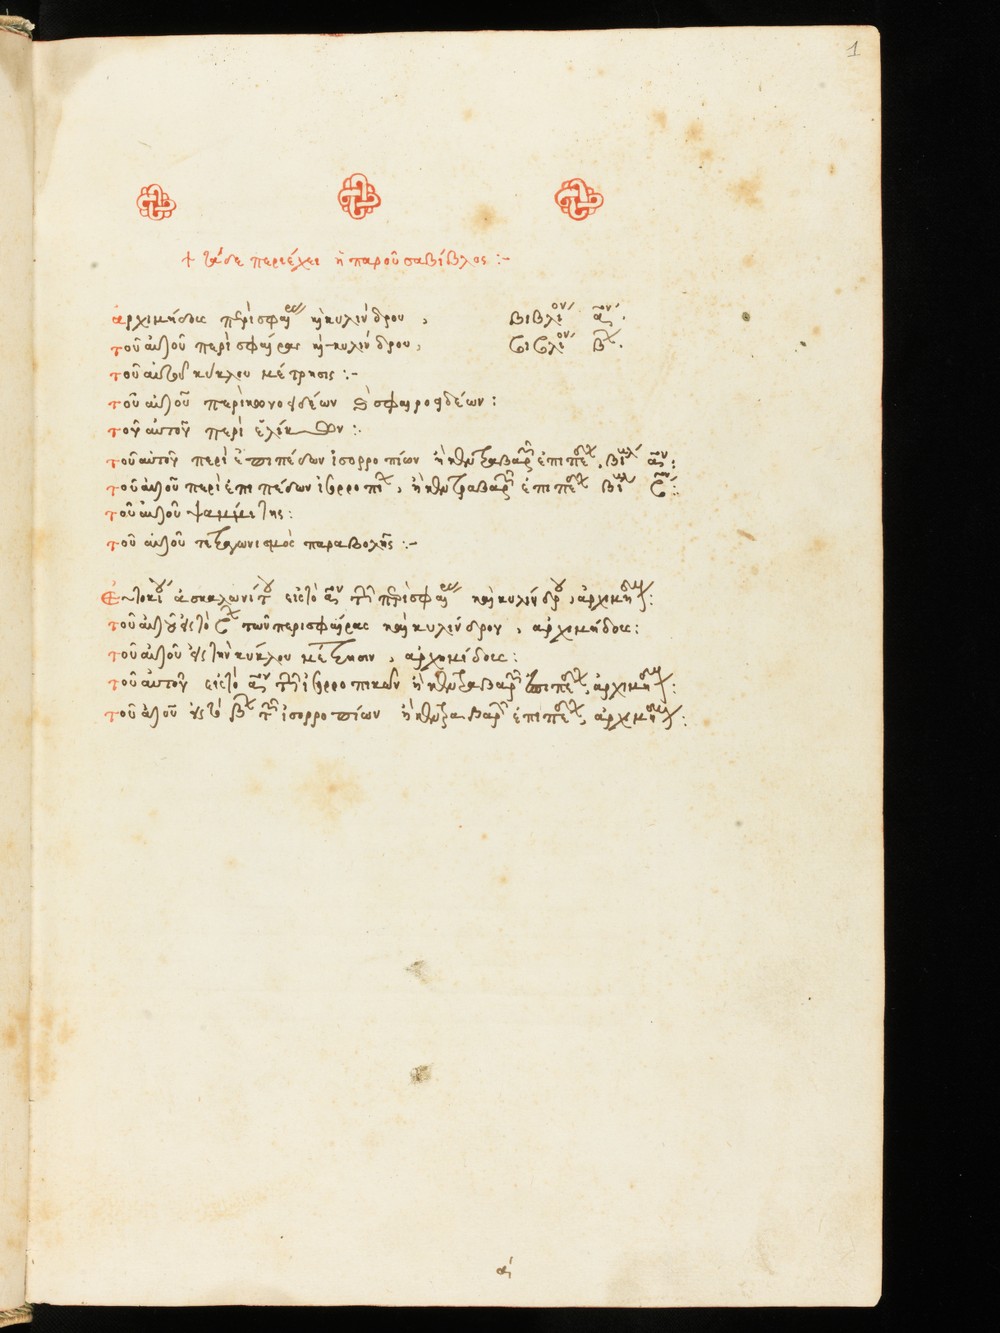 1
+ τάδε περιέχει ἡ παροῦσα βίβλος :-
ἀρχιμήδους περὶ σφαίρας κ κυλίνδρου , βιβλίον αον.
τοῦ αὐτοῦ περὶ σφαίρας κ κυλίνδρου, βιβλίον β.
τοῦ αὐτοῦ κύκλου μέτρησις :-
τοῦ αὐτοῦ περὶ κωνοειδέων κ σφαιροειδέων :
τοῦ αὐτοῦ περὶ ἑλίκων :.
τοῦ αὐτοῦ περὶ ἐπιπέδων ἰσορροπίων ἢ κέντρα βαρ ἐπιπέ, βι αον :
τοῦ αὐτοῦ περὶ ἐπιπέδων ἰσορροπι, ἢ κέντρα βαρ ἐπιπέ βι β :
τοῦ αὐτοῦ ψαμμίτης :
τοῦ αὐτοῦ τετραγωνισμὸς παραβολῆς :-
Εὐτοκίου ἀσκαλωνίτου εἰς τὸ αον τῶν περὶ σφαίρας καὶ κυλίνδρου, ἀρχιμήδους :
τοῦ αὐτοῦ εἰς τὸ β τῶν περὶ σφαίρας καὶ κυλίνδρου , ἀρχιμήδους :
τοῦ αὐτοῦ εἰς τὴν κύκλου μέτρησιν , ἀρχιμήδους :
τοῦ αὐτοῦ εἰς τὸ αον τῶν ἰσορροπικῶν ἢ κέντρα βαρ ἐπιπέ, ἀρχιμήδους :
τοῦ αὐτοῦ εἰς τὸ β τῶν ἰσορροπίων ἢ κέντρα βαρ ἐπιπέ, ἀρχιμήδους :
α